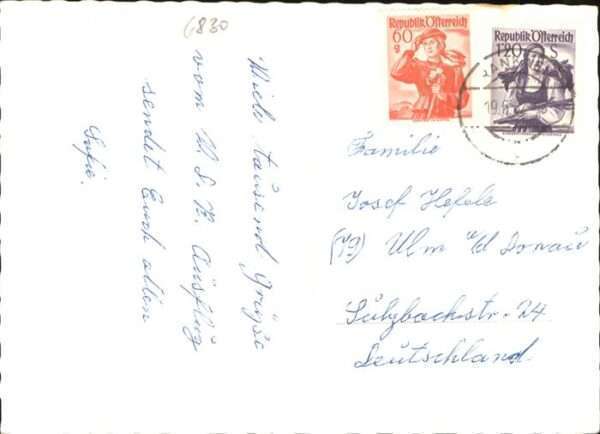 6830
Viele tausend Grüße
vom M. S. K. Ausflug
sendet Euch allen
Sofie.
Republik Österreich
60
g
Republik Österreich
1.20 S
19.6
Familie
Josef Hefele
(13) Ulm a/d Donau
Sülzbachstr. 24
Deutschland.